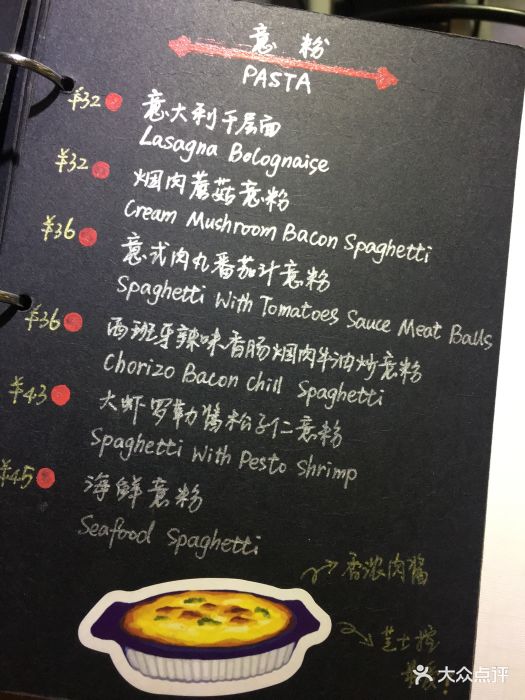 意 粉
PASTA
¥32 意大利千层面
Lasagna Bolognaise
¥32 烟肉蘑菇意粉
Cream Mushroom Bacon Spaghetti
¥36 意式肉丸番茄汁意粉
Spaghetti With Tomatoes Sauce Meat Balls
¥36 西班牙辣味香肠烟肉牛油炒意粉
Chorizo Bacon Chill Spaghetti
¥43 大虾罗勒酱松子仁意粉
Spaghetti With Pesto Shrimp
¥45 海鲜意粉
Seafood Spaghetti
香浓肉酱
芝士控
大众点评